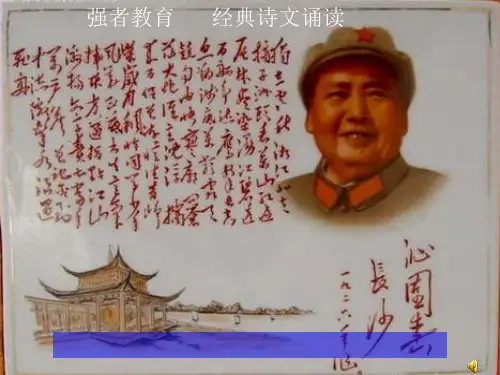 强者教育 经典诗文诵读
独立寒秋湘江北去
橘子洲头看万山红遍
层林尽染漫江碧透
百舸争流鹰击长空
鱼翔浅底万类霜天
竞自由怅寥廓问苍
茫大地谁主沉浮携
来百侣曾游忆往昔峥
嵘岁月稠恰同学少年
风华正茂书生意气
挥斥方遒指点江山
激扬文字粪土当年
万户侯曾记否到
中流击水浪遏
飞舟
沁园春
長沙
一九二六年